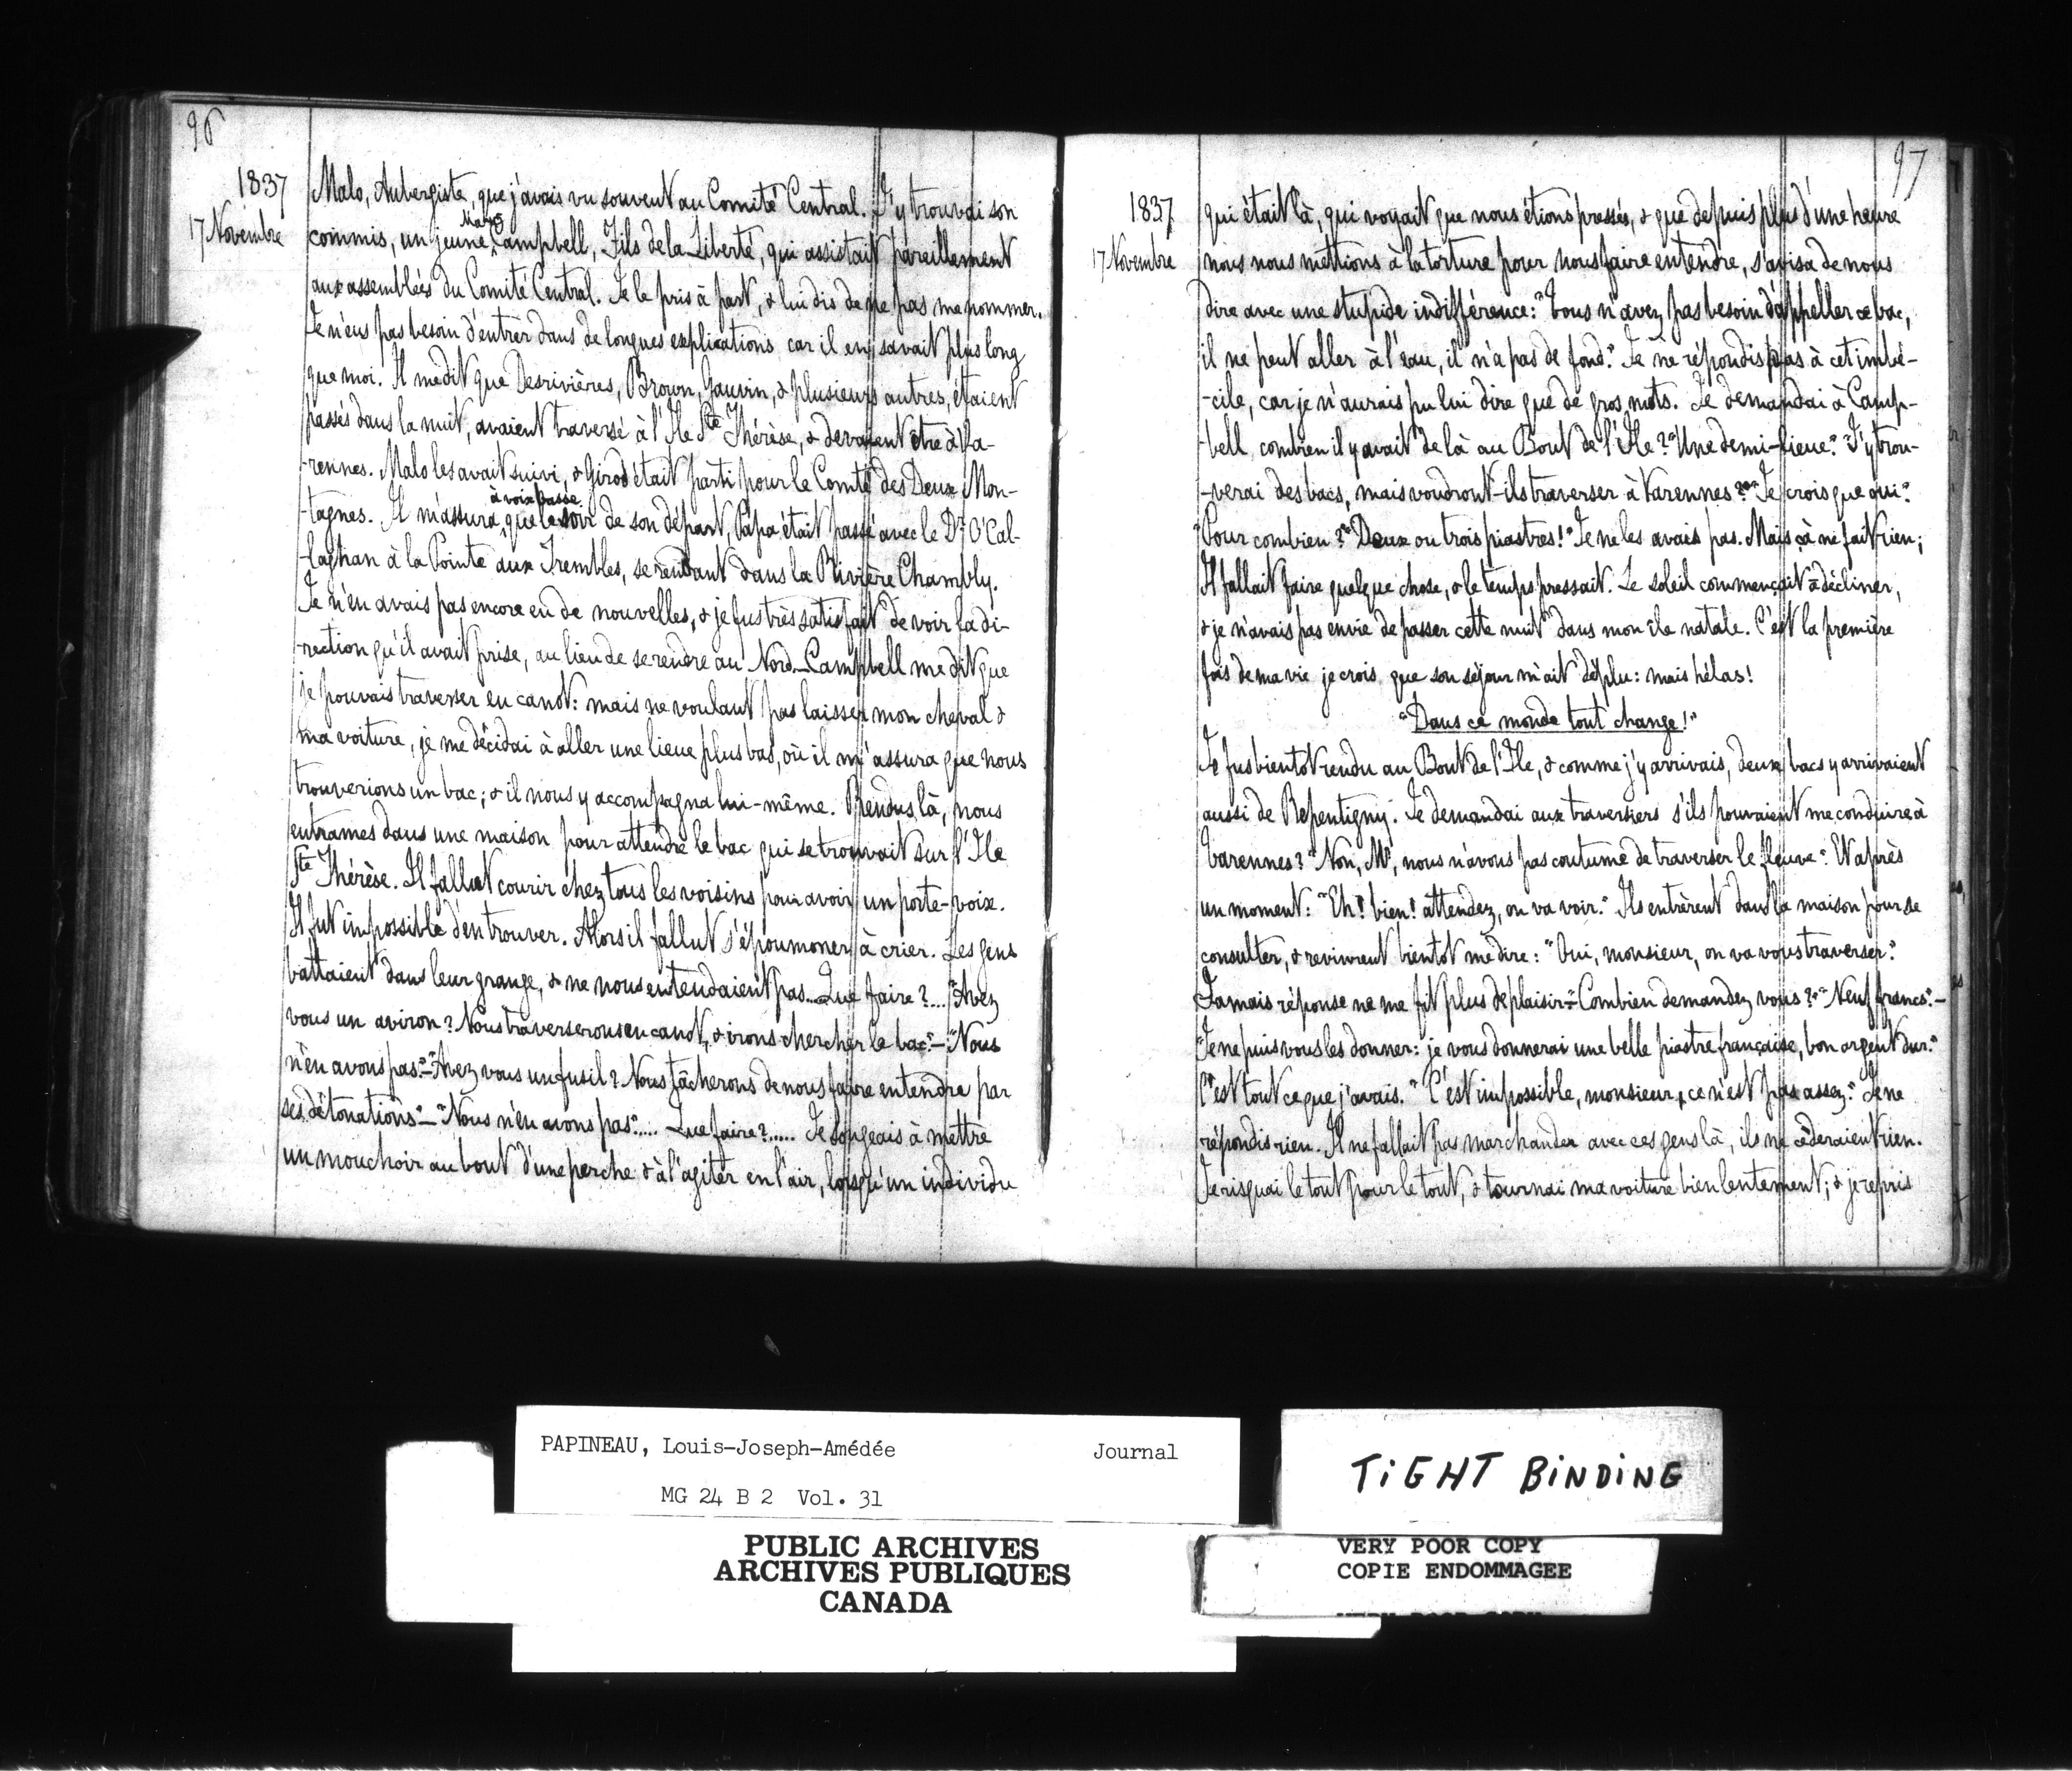 96
1837
17 Novembre
Malo, Aubergiste, que j'avais vu souvent au Comité Central. J'y trouvai son
commis, un jeune Campbell, Fils de la Liberté, qui assistait pareillement
aux assemblées du Comité Central. Je le pris à part, & lui dis de ne pas me nommer.
Je n'eus pas besoin d'entrer dans de longues explications car il en savait plus long
que moi. Il me dit que Desrivières, Brown, Gauvin, & plusieurs autres, étaient
passés dans la nuit, avaient traversé à l'Ile Ste Thérèse, & devaient être à Va-
-rennes. Malo les avait suivi, & Girod était parti pour le Comté des Deux Mon-
à voix basse
-tagnes. Il m'assura, que le soir de son départ, Papa était passé avec le Dr O'Cal-
-laghan à la Pointe aux Trembles, se rendant dans la Rivière Chambly.
Je n'en avais pas encore eu de nouvelles, & je fus très satisfait de voir la di-
-rection qu'il avait prise, au lieu de se rendre au Nord. Campbell me dit que
je pouvais traverser en canot: mais ne voulant pas laisser mon cheval &
ma voiture, je me décidai à aller une lieue plus bas, où il m'assura que nous
trouverions un bac; & il nous y accompagna lui-même. Rendus là, nous
entrames dans une maison pour attendre le bac qui se trouvait sur l'Ile
Ste Thérèse. Il fallut courir chez tous les voisins pour avoir un porte-voix.
Il fut impossible d'en trouver. Alors il fallut s'époumoner à crier. Les gens
battaient dans leur grange, & ne nous entendaient pas... Que faire?... "Avez
vous un aviron? Nous traverserons en canot, & irons chercher le bac."—"Nous
n'en avons pas."—"Avez vous un fusil? Nous tâcherons de nous faire entendre par
ses détonations."—"Nous n'en avons pas"..... Que faire?..... Je songeais à mettre
un mouchoir au bout d'une perche & à l'agiter en l'air, lorsqu'un individu
97
1837
17 Novembre
qui était là, qui voyait que nous étions pressés, & que depuis plus d'une heure
nous nous mettions à la torture pour nous faire entendre, s'avisa de nous
dire avec une stupide indifférence: "Vous n'avez pas besoin d'appeller ce bac,
il ne peut aller à l'eau, il n'a pas de fond." Je ne répondis pas à cet imbé-
-cile, car je n'aurais pu lui dire que de gros mots. Je demandai à Camp-
-bell combien il y avait de là au Bout de l'Ile? "Une demi-lieue." "J'y trou-
-verai des bacs, mais voudront-ils traverser à Varennes?" "Je crois que oui."
"Pour combien?" "Deux ou trois piastres!" Je ne les avais pas. Mais çà ne fait rien;
Il fallait faire quelque chose, & le temps pressait. Le soleil commençait à décliner,
& je n'avais pas envie de passer cette nuit dans mon île natale. C'est la première
fois de ma vie je crois que son séjour m'ait déplu: mais hélas!
"Dans ce monde tout change!"
Je fus bientôt rendu au Bout de l'Ile, & comme j'y arrivais, deux bacs y arrivaient
aussi de Repentigny. Je demandai aux traversiers s'ils pouvaient me conduire à
Varennes? "Non, Mr, nous n'avons pas coutume de traverser le fleuve." Et après
un moment: "Eh! bien! attendez, on va voir." Ils entrèrent dans la maison pour se
consulter, & revinrent bientôt me dire: "Oui, monsieur, on va vous traverser."
Jamais réponse ne me fit plus de plaisir."Combien demandez vous?" "Neuf francs."—
"Je ne puis vous les donner: je vous donnerai une belle piastre française, bon argent dur."
C'est tout ce que j'avais. "C'est impossible, monsieur, ce n'est pas assez." Je ne
répondis rien. Il ne fallait pas marchander avec ces gens là, ils ne cèderaient rien.
Je risquai le tout pour le tout, & tournai ma voiture bien lentement; & je repris
PAPINEAU, Louis-Joseph-Amédée Journal
MG 24 B 2 Vol. 31
PUBLIC ARCHIVES
ARCHIVES PUBLIQUES
CANADA
TIGHT BINDING
VERY POOR COPY
COPIE ENDOMMAGEE